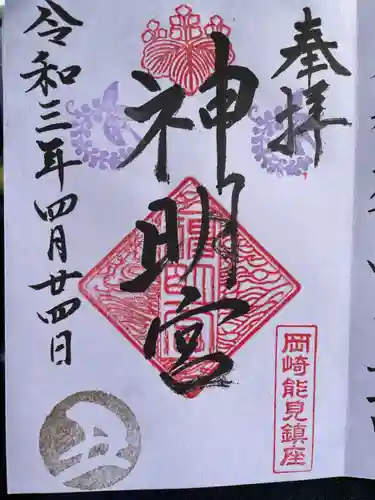 奉拝
岡崎能見鎮座
神明宮
令和三年四月廿四日
丑